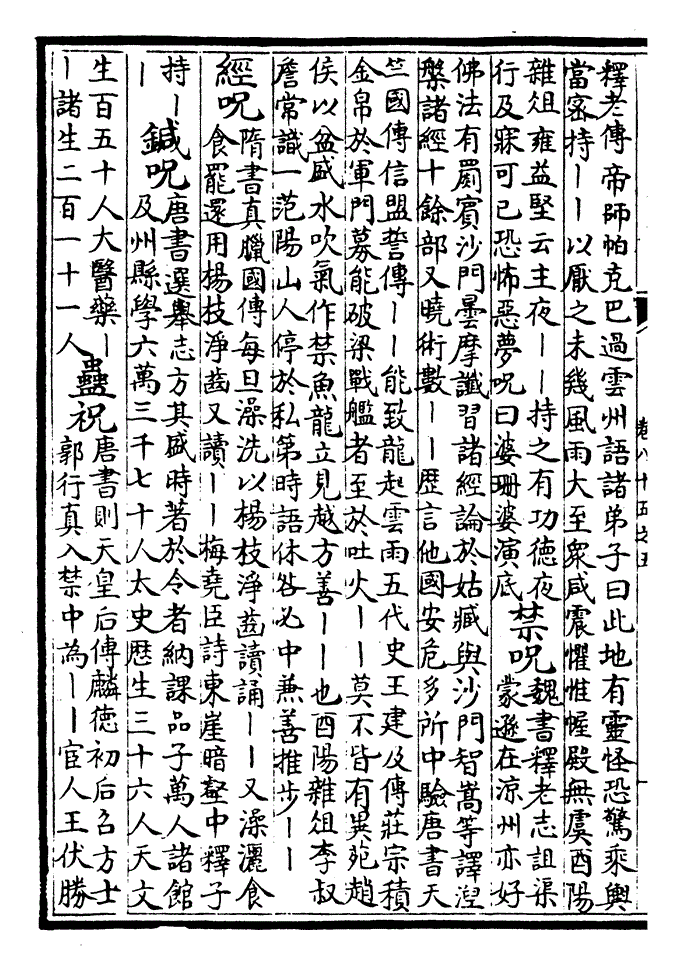 釋老傳帝師帕克巴過雲州語諸弟子曰此地有靈怪恐驚乘輿
當密持――以厭之未幾風雨大至衆咸震懼惟幄殿無虞酉陽
雜俎雍益堅云主夜――持之有功德夜
行及寐可已恐怖惡夢呪曰婆珊婆演底
禁呪
魏書釋老志詛渠
蒙遜在涼州亦好
佛法有罽賓沙門曇摩讖習諸經論於姑臧與沙門智嵩等譯涅
槃諸經十餘部又曉術數――歷言他國安危多所中驗唐書天
竺國傳信盟誓傳――能致龍起雲雨五代史王建及傳莊宗積
金帛於軍門募能破梁戰艦者至於吐火――莫不皆有異苑趙
侯以盆盛水吹氣作禁魚龍立見越方善――也酉陽雜俎李叔
詹常識一范陽山人停於私第時語休咎必中兼善推步――
經呪
隋書真臘國傳每旦澡洗以楊枝淨齒讀誦――又澡灑食
食罷還用楊枝淨齒又讀――梅堯臣詩東崖暗壑中釋子
持―
―
鍼呪
唐書選舉志方其盛時著於令者納課品子萬人諸館
及州縣學六萬三千七十人太史歷生三十六人天文
生百五十人大醫藥―
―諸生二百一十一人
蠱祝
唐書則天皇后傳麟德初后召方士
郭行真入禁中為――宦人王伏勝
卷八十五之五